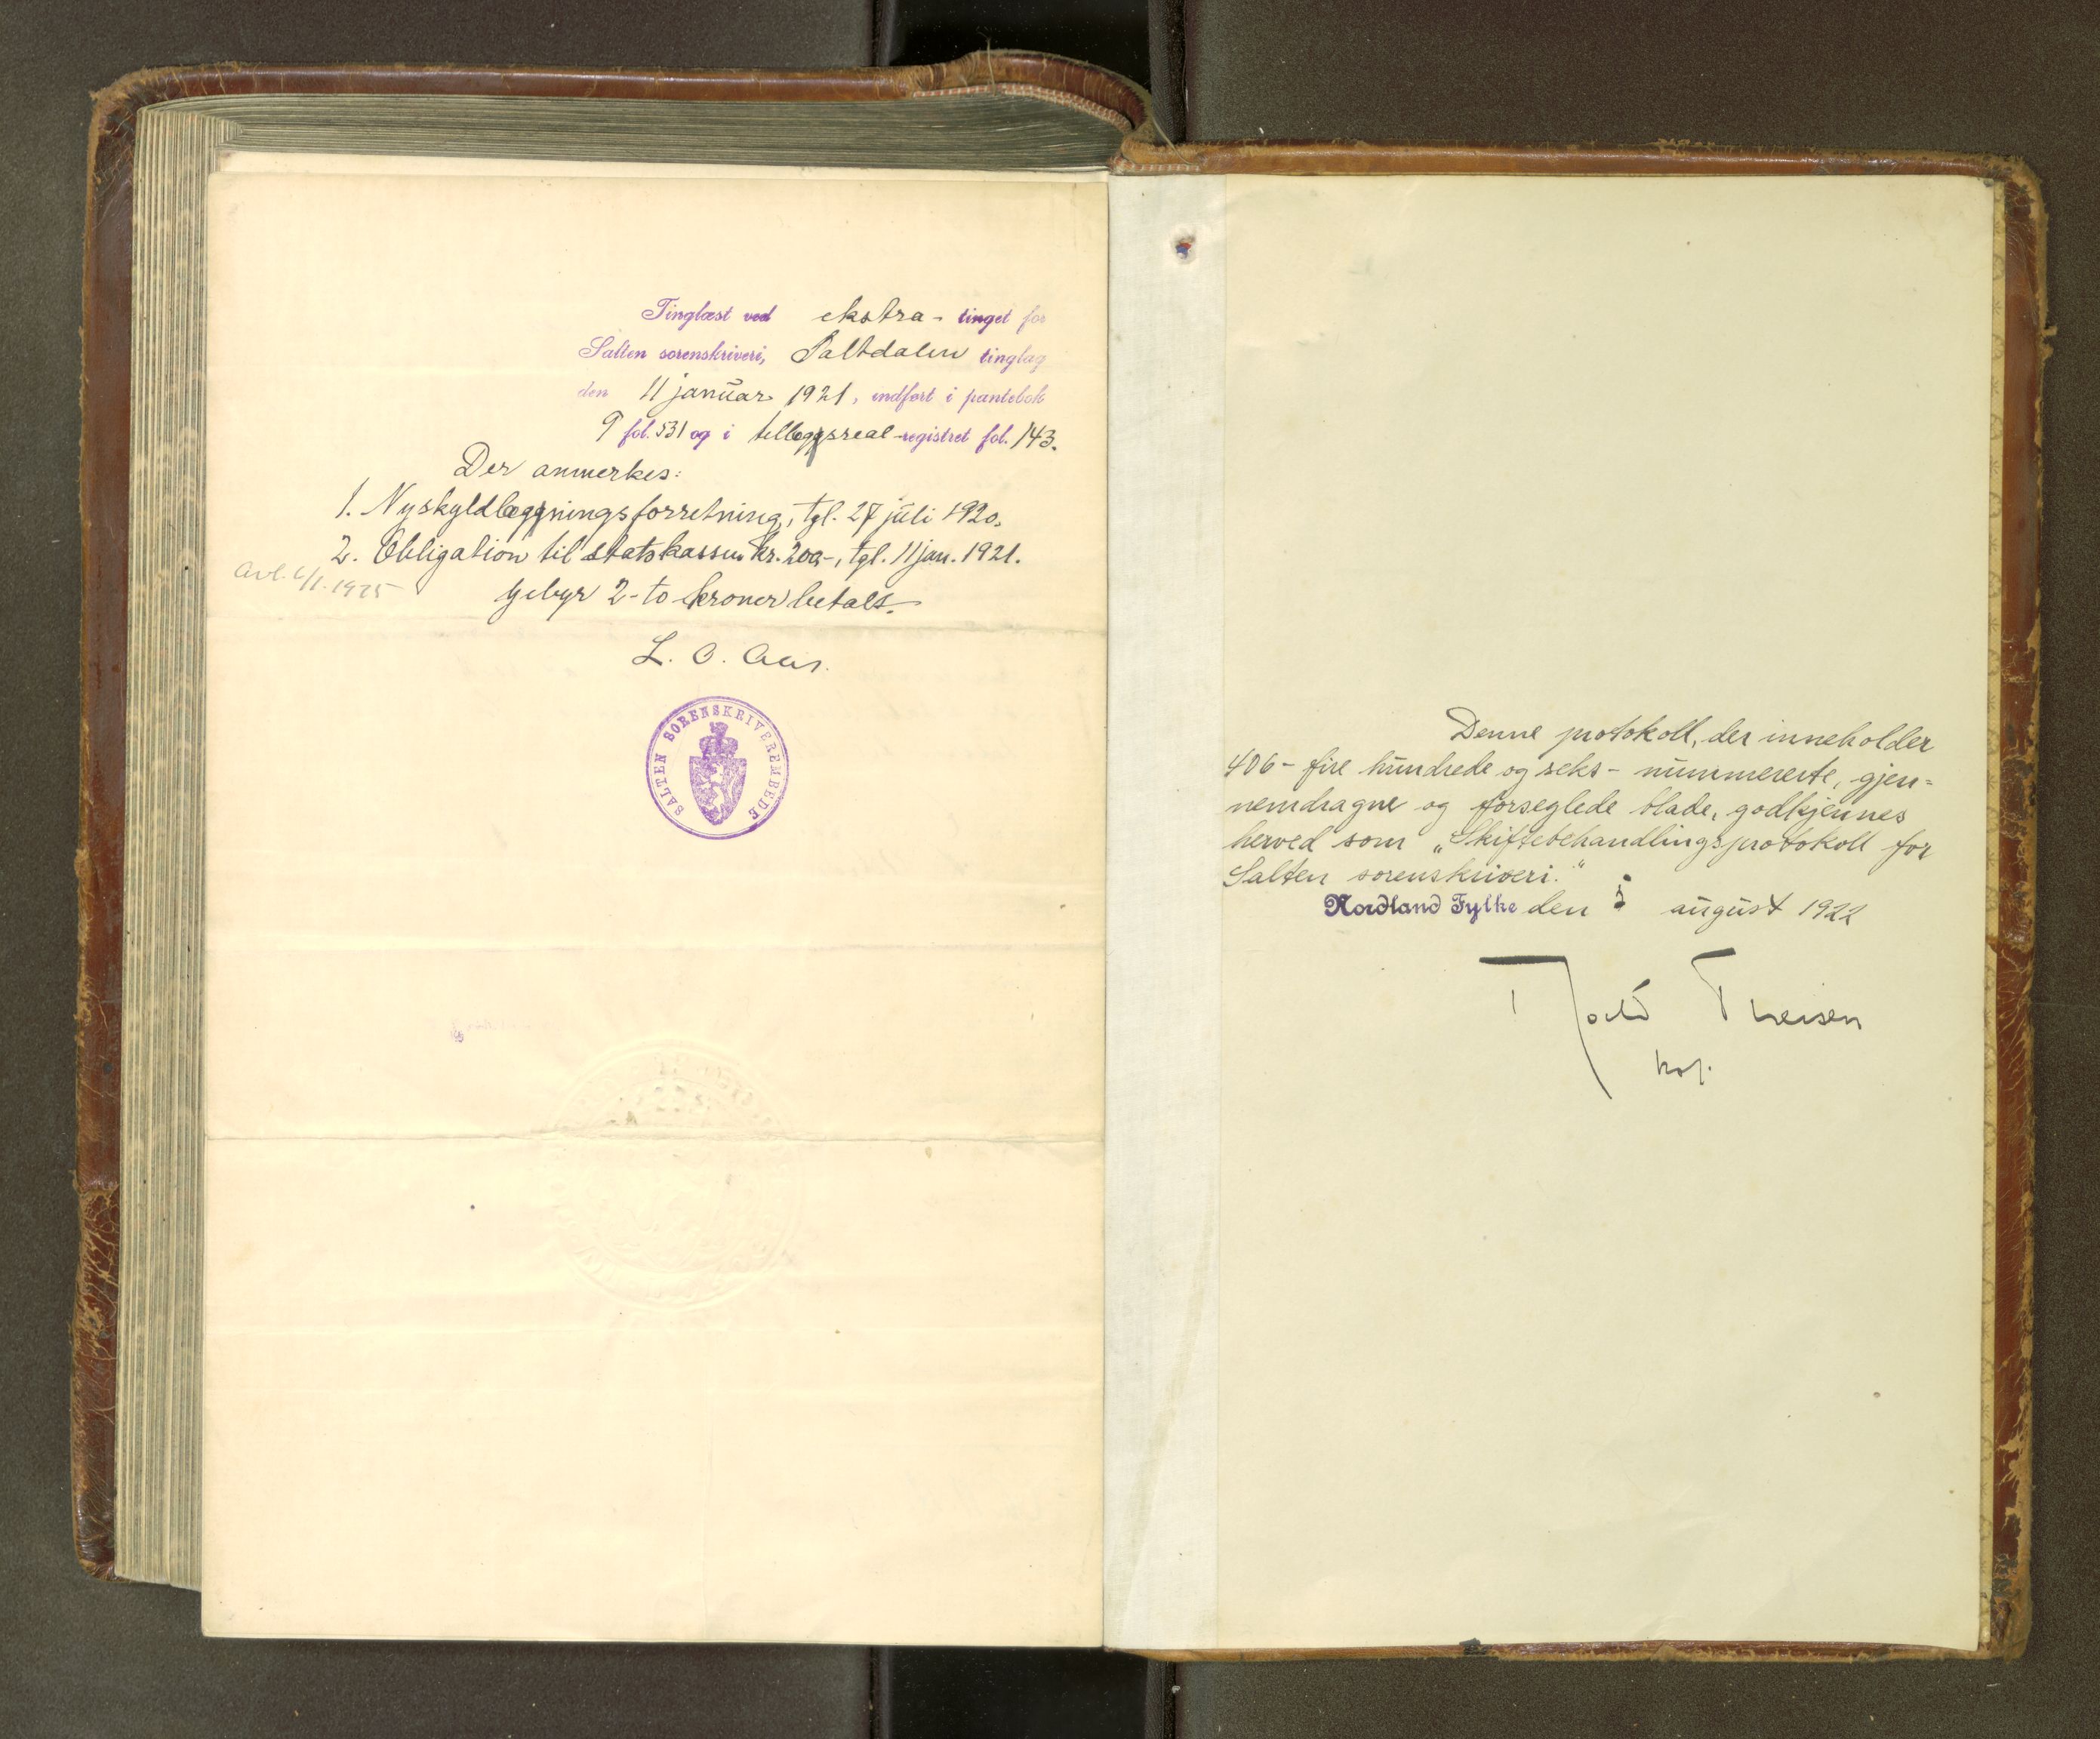 Tinglæst ved ekstra- tinget for
Salten sorenskriveri, Saltdalen tinglag
den 11 januar 1921, indført i pantebok
9 fol. 531 og i tilleggsreal-registret fol. 143.
Der anmerkes:
1. Nyskyldlæggningsforretning, tgl. 27 juli 1920.
2. Obligation til statskassen kr. 200-, tgl. 11 jan. 1921.
avl. 6/1-1925
Gebyr 2-to kroner betalt.
L. O. Aas.
SALTEN SORENSKRIVEREMBEDE
Denne protokoll, der inneholder
406- fire hundrede og seks- nummererte, gjen=
nemdragne og forseglede blade, godkjennes
herved som „Skiftebehandlingsprotokoll for
Salten sorenskriveri."
Nordland Fylke den 5 august 1922
Theisen